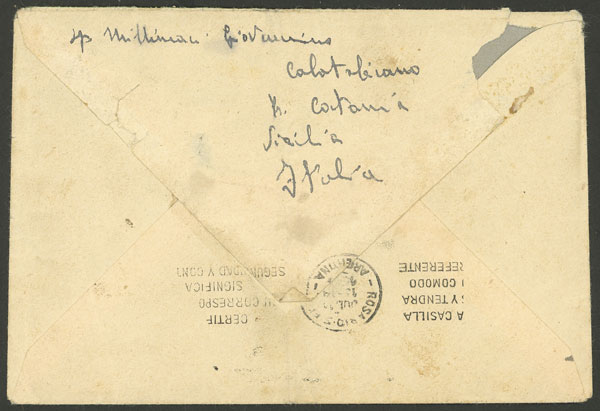 Giovannino
Calatabiano
Catania
Sicilia
Italia
CERTIF
U CORRESPO
SIGNIFICA
SEGURIDAD Y CONT
ROSARIO
JUL 11
ARGENTINA
A CASILLA
S Y TENDRA
COMODO
REFERENTE